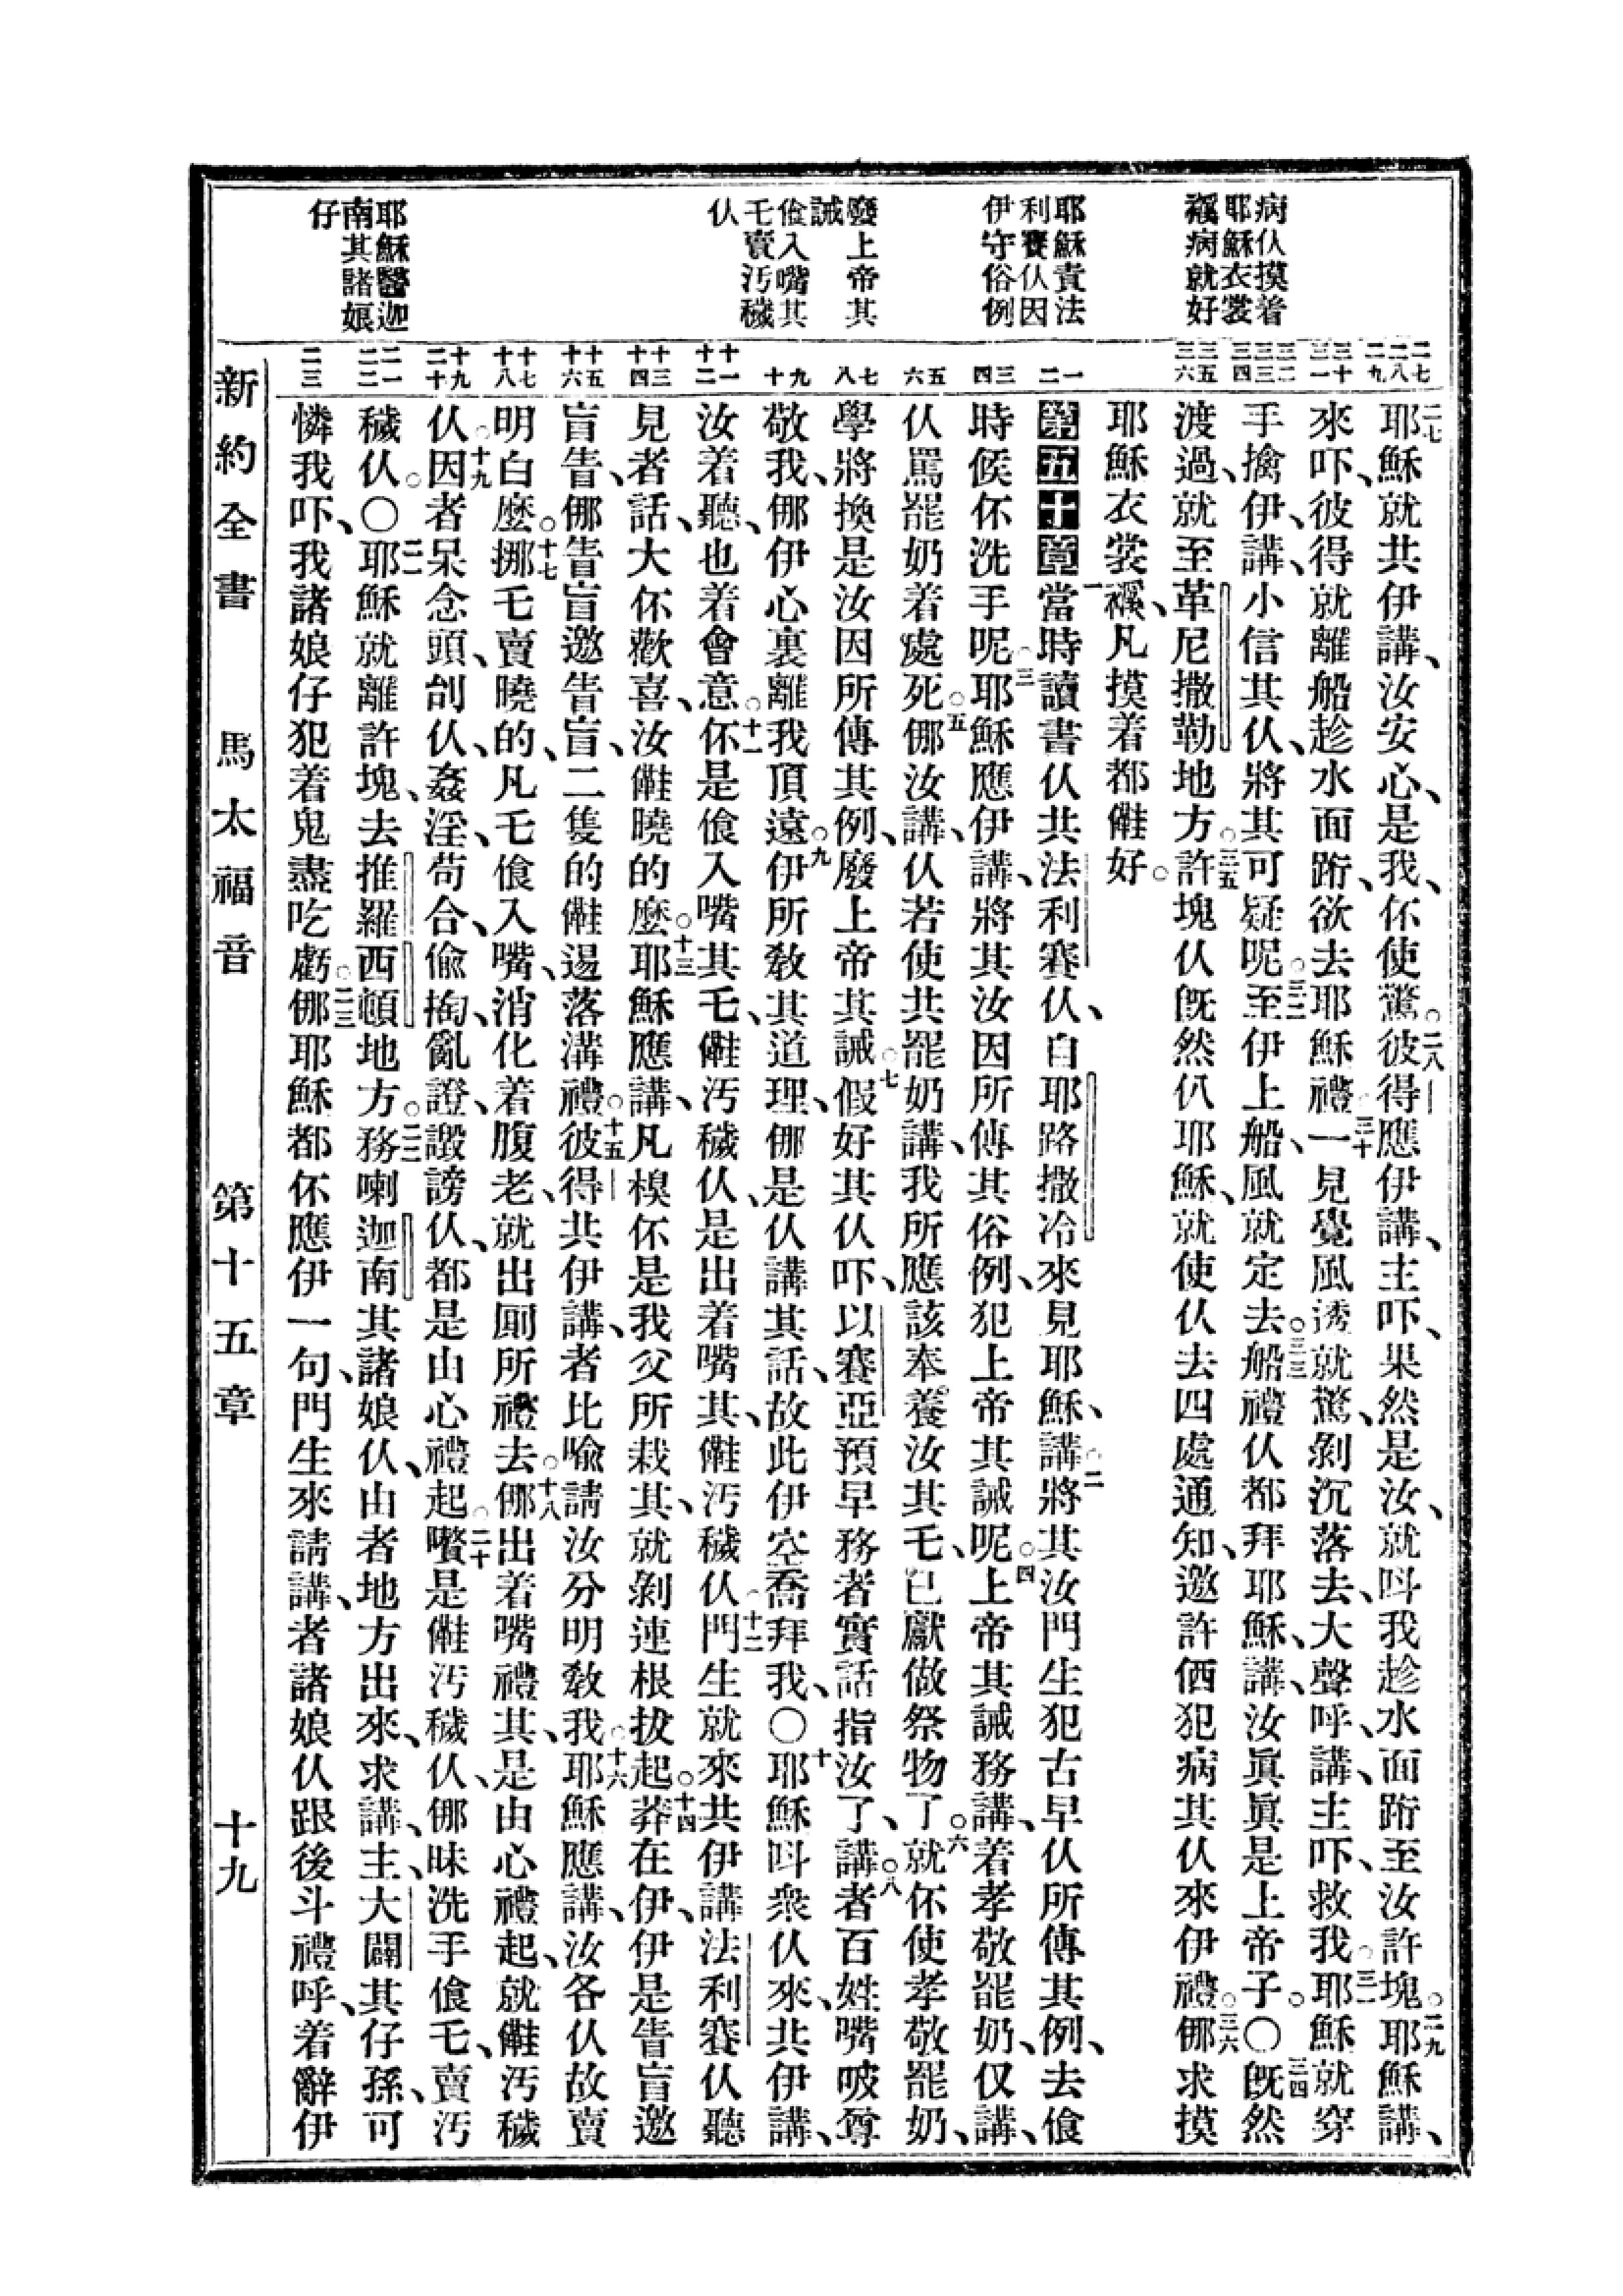 病仫摸着
耶穌衣裳
襤病就好
耶穌責法
利賽仫因
伊守俗例
廢上帝其
誡
儉入嘴其
乇賣污穢
仫
耶穌醫迦
南其諸娘
仔
二七 二八 二九
三十 三一
三二 三三 三四
三五 三六
一 二
三 四
五 六
七 八
九 十
十一 十二
十三 十四
十五 十六
十七 十八
十九 二十
二一 二二
二三
二七耶穌就共伊講、汝安心、是我、伓使驚。二八彼得應伊講、主吓、果然是汝、就呌我趁水面跲至汝許塊。二九耶穌講、
來吓、彼得就離船趁水面跲、欲去耶穌禮。三十一見覺風透就驚、剝沉落去、大聲呼、講、主吓、救我。三一耶穌就穿
手擒伊、講、小信其仫、將其可疑呢。三二至伊上船、風就定去。三三船禮仫都拜耶穌、講、汝眞眞是上帝子。〇三四旣然
渡過、就至革尼撒勒地方。三五許塊仫旣然仈耶穌、就使仫去四處通知、邀許価犯病其仫來伊禮。三六㑚求摸
耶穌衣裳襤、凡摸着都儺好。
第五十章一當時讀書仫共法利賽仫、自耶路撒冷來見耶穌、講。二將其汝門生犯古早仫所傳其例、去飧
時候伓洗手呢。三耶穌應伊講、將其汝因所傳其俗例、犯上帝其誡呢。四上帝其誡務講、着孝敬罷奶、仅講、
仫罵罷奶着處死。五㑚汝講、仫若使共罷奶講、我所應該奉養汝其乇、已獻做祭物了。六就伓使孝敬罷奶、
學將換是汝因所傳其例、廢上帝其誡。七假好其仫吓、以賽亞預早務者實話指汝了、講。八者百姓嘴唆尊
敬我、㑚伊心裏離我頂遠。九伊所敎其道理、㑚是仫講其話、故此伊空喬拜我、〇十耶穌呌衆仫來、共伊講、
汝着聽、也着會意。十一伓是飧入嘴其乇、儺污穢仫、是出着嘴其、儺污穢仫。十二門生就來共伊講、法利賽仫聽
見者話、大伓歡喜、汝儺曉的麼。十三耶穌應講、凡模伓是我父所栽其、就剝連根拔起。十四莽在伊、伊是眚盲邀
盲眚、㑚眚盲邀眚盲、二隻的儺逿落溝禮。十五彼得共伊講、者比喩請汝分明敎我。十六耶穌應講、汝各仫故賣
明白麼。十七挪乇賣曉的、凡乇飧入嘴、消化着腹老、就出厠所禮去。十八㑚出着嘴禮其、是由心禮起、就儺污穢
仫。十九因者呆念頭、刣仫、姦淫、苟合、偸掏、亂證、譭謗仫、都是由心禮起。二十嚽是儺污穢仫、㑚昧洗手飧乇、賣污
穢仫。〇二一耶穌就離許塊、去推羅西頓地方。二二務喇迦南其諸娘仫、由者地方出來、求講、主、大闢其仔孫、可
憐我吓、我諸娘仔犯着鬼盡吃虧。二三㑚耶穌都伓應伊一句、門生來請講、者諸娘仫跟後斗禮呼、着辭伊
新約全書　馬太福音　第十五章　十九